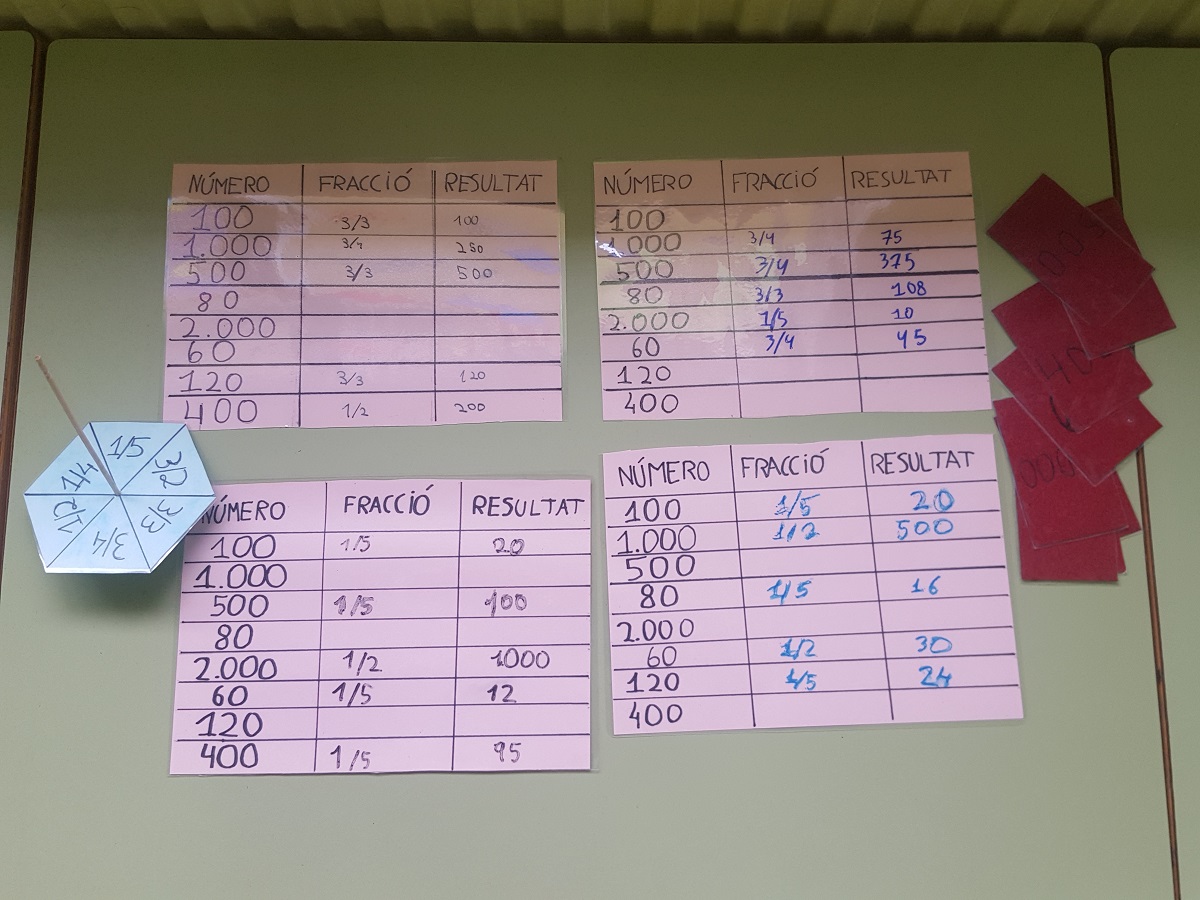 NÚMERO FRACCIÓ RESULTAT
100 3/3 100
1.000 3/4 250
500 3/3 500
80
2.000
60
120 3/3 120
400 1/2 200
NÚMERO FRACCIÓ RESULTAT
100
1.000 3/4 75
500 3/4 375
80 3/3 108
2.000 1/5 10
60 3/4 45
120
400
1/5
3/2
3/3
3/4
1/2
1/4
NÚMERO FRACCIÓ RESULTAT
100 1/5 20
1.000
500 1/5 100
80
2.000 1/2 1000
60 1/5 12
120
400 1/5 95
NÚMERO FRACCIÓ RESULTAT
100 1/5 20
1.000 1/2 500
500
80 1/5 16
2.000
60 1/2 30
120 1/5 24
400